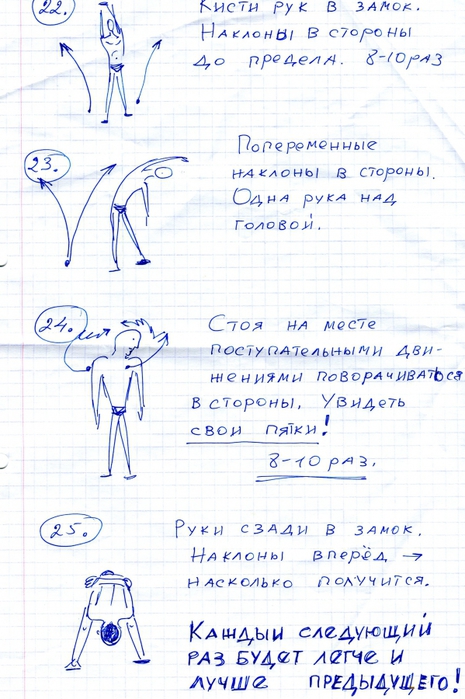 22.
Кисти рук в замок.
Наклоны в стороны
до предела. 8-10 раз
23.
Попеременные
наклоны в стороны.
Одна рука над
головой.
24.
Стоя на месте
поступательными дви-
жениями поворачиваться
в стороны, увидеть
свои пятки!
8-10 раз.
25.
Руки сзади в замок.
Наклоны вперёд →
насколько получится.
Каждый следующий
раз будет легче и
лучше предыдущего!